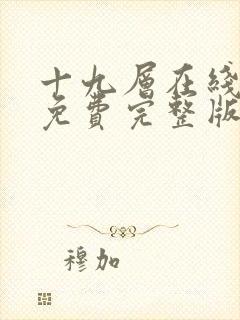 十九层在线
免费完整版
穆加